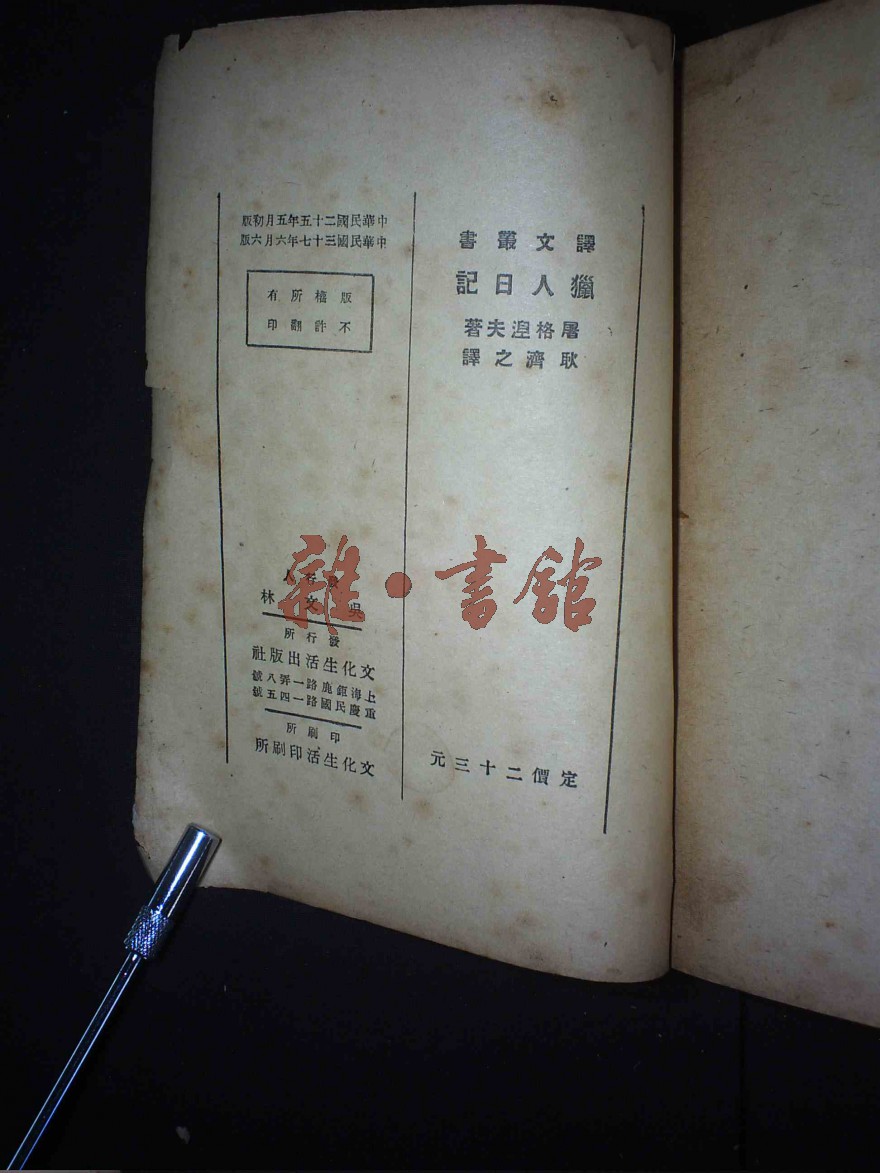 譯文叢書
獵人日記
屠格涅夫著
耿濟之譯
定價二十三元
中華民國二十五年五月初版
中華民國三十七年六月六版
版權所有
不許翻印
人
吳文林
發行所
文化生活出版社
上海鉅鹿路一弄八號
重慶民國路一四五號
印刷所
文化生活印刷所
雜·書館